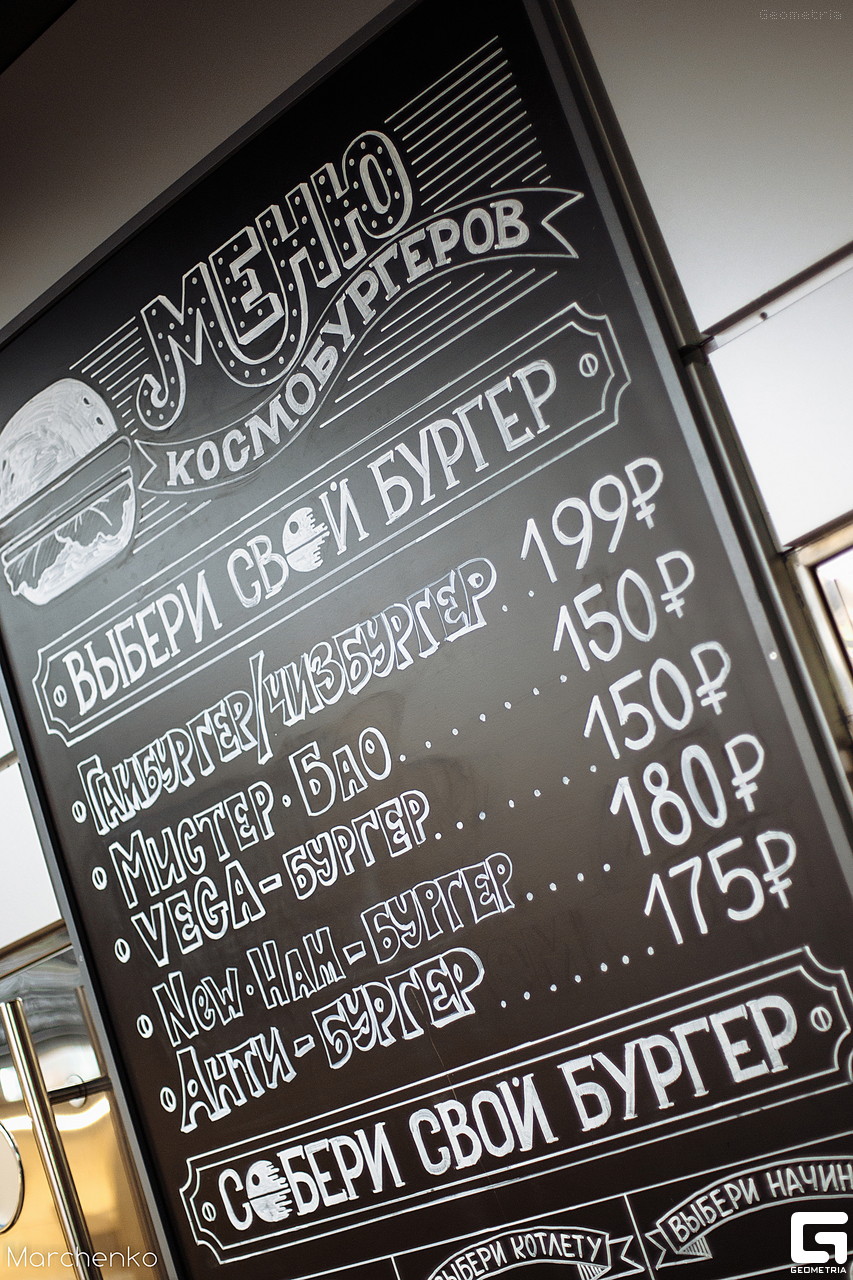 Geometria
МЕНЮ
КОСМОБУРГЕРОВ
ВЫБЕРИ СВОЙ БУРГЕР
ГАМБУРГЕР/ЧИЗБУРГЕР..199₽
МИСТЕР·БАО..........150₽
VEGA-БУРГЕР.........150₽
NEW·HAM-БУРГЕР....180₽
АНТИ-БУРГЕР.......175₽
СОБЕРИ СВОЙ БУРГЕР
ВЫБЕРИ КОТЛЕТУ
ВЫБЕРИ НАЧИН
Marchenko
GEOMETRIA